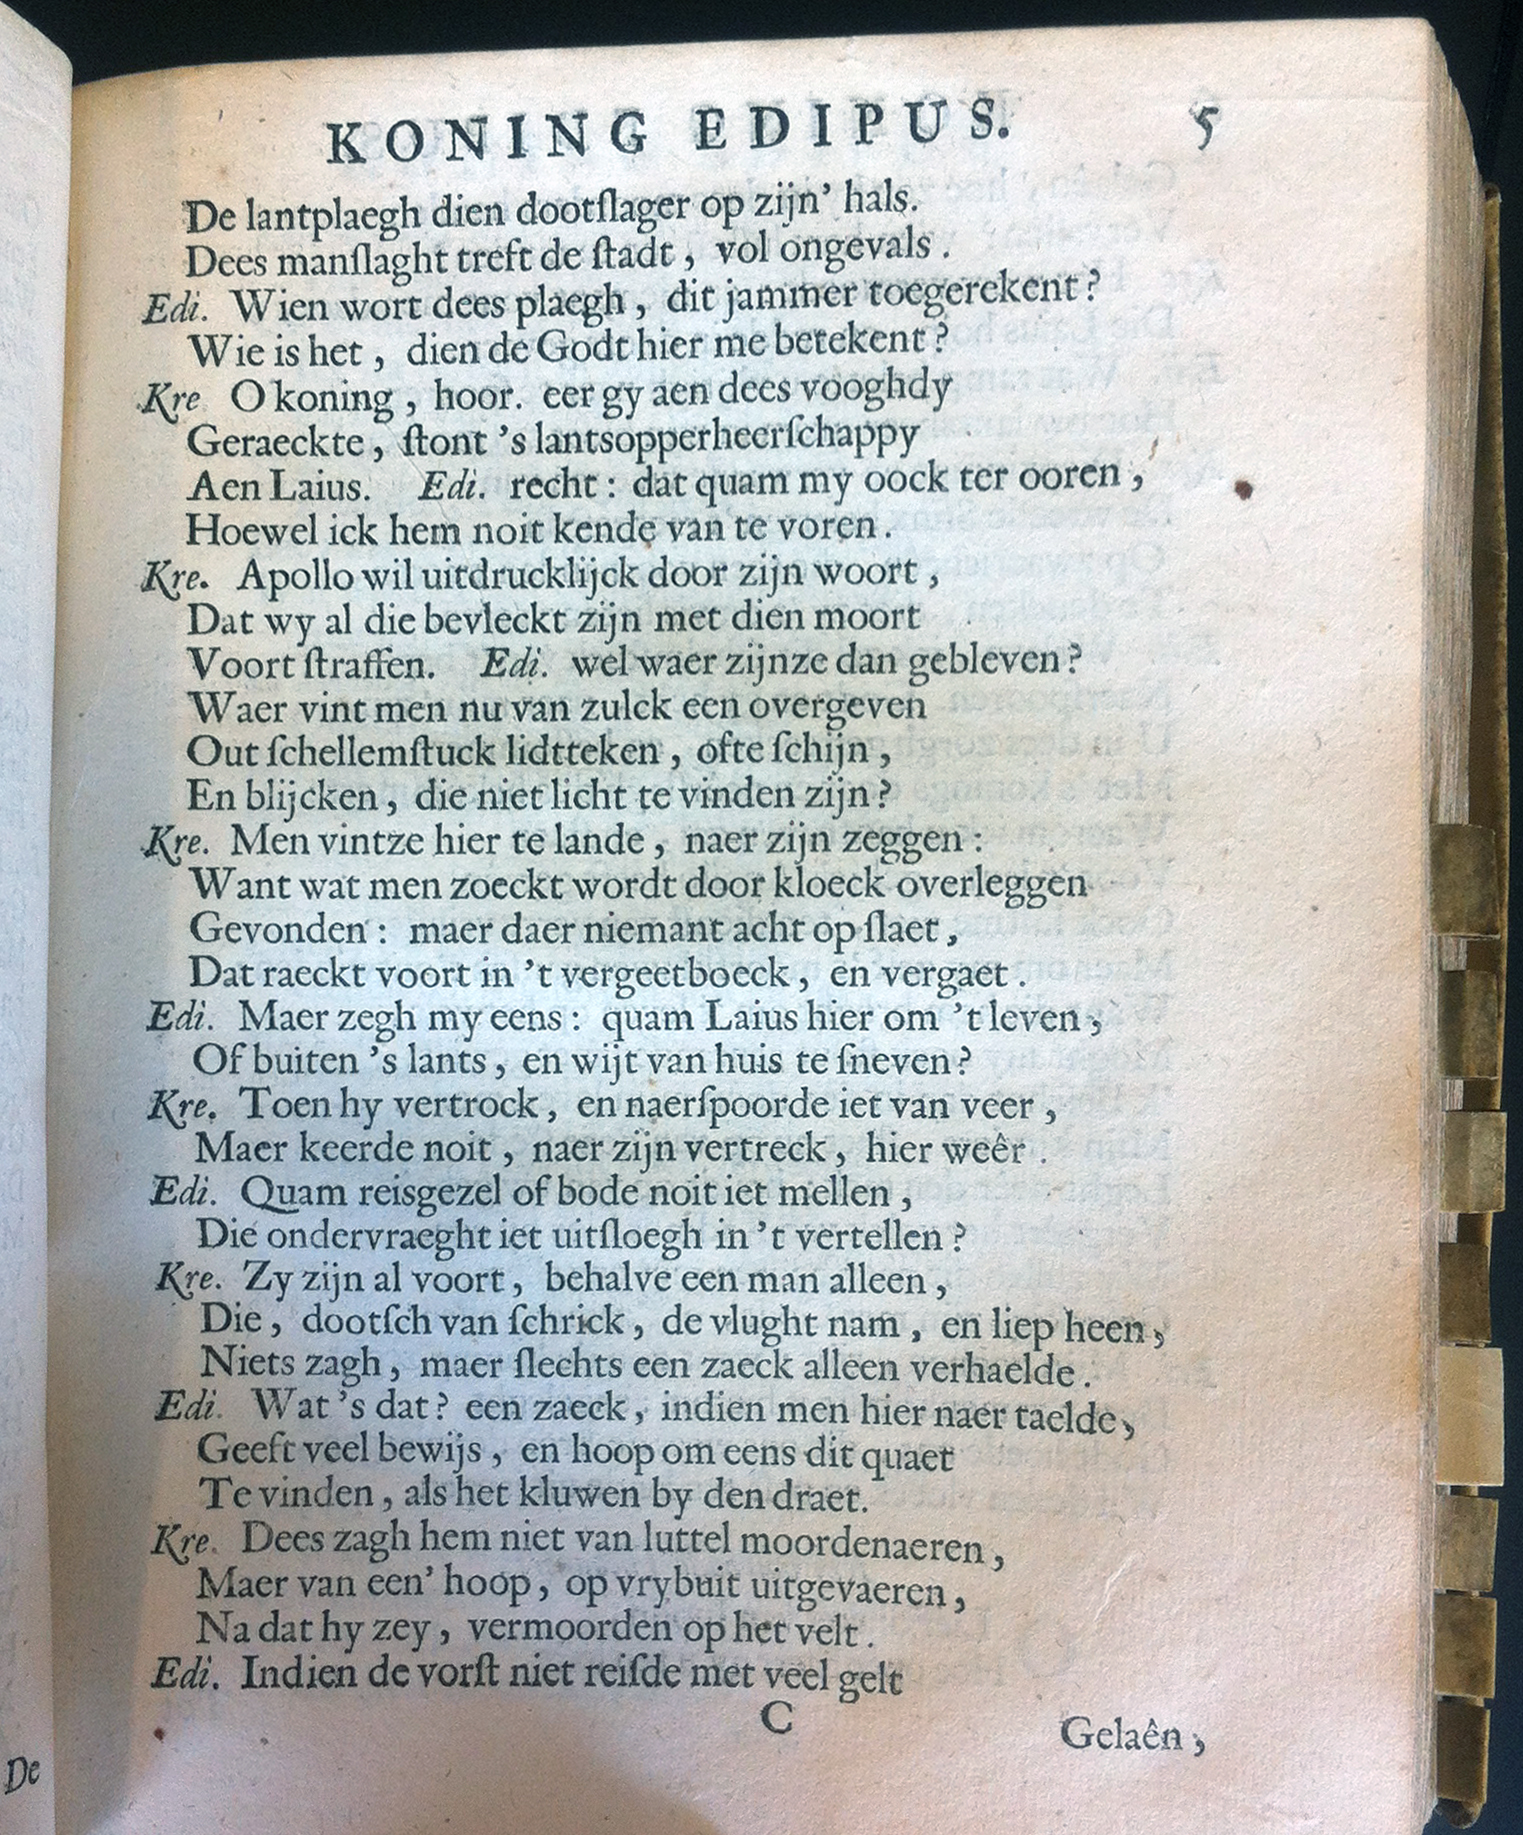 KONING EDIPUS. 5
De lantplaegh dien dootſlager op zijn' hals.
Dees manſlaght treft de ſtadt, vol ongevals.
Edi. Wien wort dees plaegh, dit jammer toegerekent?
Wie is het, dien de Godt hier me betekent?
Kre O koning, hoor. eer gy aen dees vooghdy
Geraeckte, ſtont 's lantsopperheerſchappy
Aen Laius. Edi. recht: dat quam my oock ter ooren,
Hoewel ick hem noit kende van te voren.
Kre. Apollo wil uitdrucklijck door zijn woort,
Dat wy al die bevleckt zijn met dien moort
Voort ſtraffen. Edi. wel waer zijnze dan gebleven?
Waer vint men nu van zulck een overgeven
Out ſchellemſtuck lidtteken, ofte ſchijn,
En blijcken, die niet licht te vinden zijn?
Kre. Men vintze hier te lande, naer zijn zeggen:
Want wat men zoeckt wordt door kloeck overleggen
Gevonden: maer daer niemant acht op ſlaet,
Dat raeckt voort in 't vergeetboeck, en vergaet.
Edi. Maer zegh my eens: quam Laius hier om 't leven,
Of buiten 's lants, en wijt van huis te ſneven?
Kre. Toen hy vertrock, en naerſpoorde iet van veer,
Maer keerde noit, naer zijn vertreck, hier weêr.
Edi. Quam reisgezel of bode noit iet mellen,
Die ondervraeght iet uitſloegh in 't vertellen?
Kre. Zy zijn al voort, behalve een man alleen,
Die, dootſch van ſchrick, de vlught nam, en liep heen,
Niets zagh, maer ſlechts een zaeck alleen verhaelde.
Edi. Wat 's dat? een zaeck, indien men hier naer taelde,
Geeft veel bewijs, en hoop om eens dit quaet
Te vinden, als het kluwen by den draet.
Kre. Dees zagh hem niet van luttel moordenaeren,
Maer van een' hoop, op vrybuit uitgevaeren,
Na dat hy zey, vermoorden op het velt.
Edi. Indien de vorſt niet reiſde met veel gelt
C Gelaên,
De